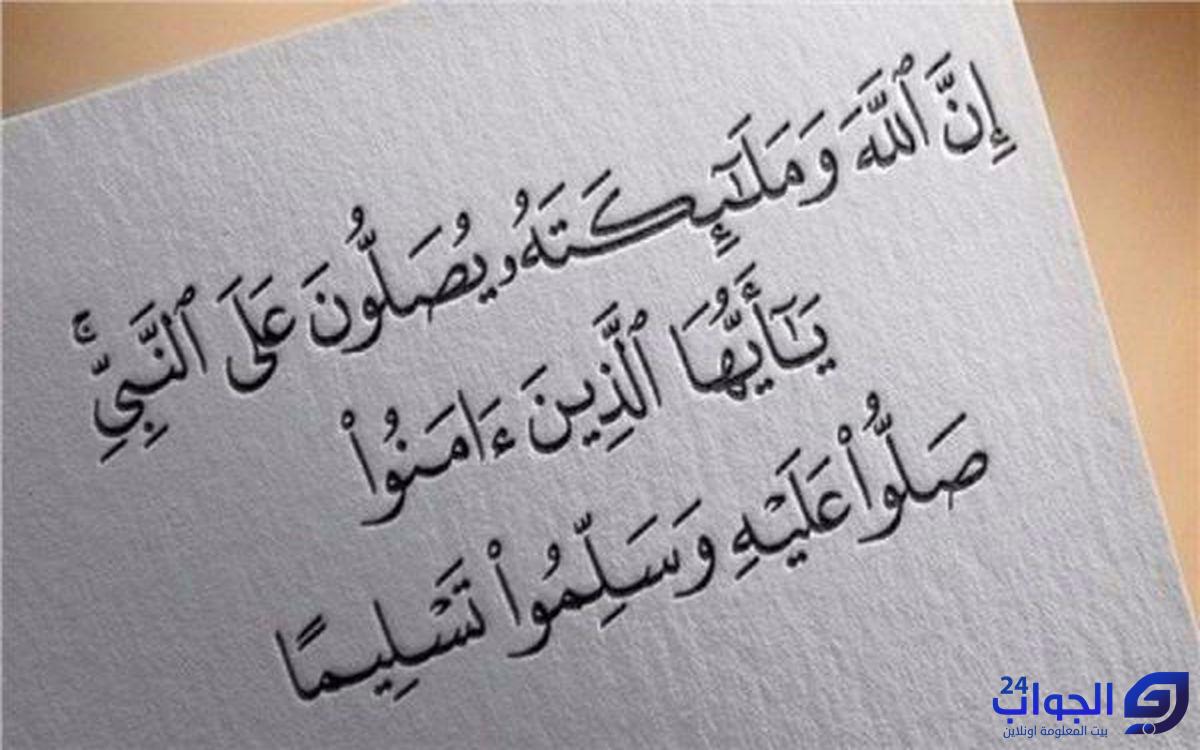 إِنَّ ٱللَّهَ وَمَلَـٰٓئِكَتَهُۥ يُصَلُّونَ عَلَى ٱلنَّبِيِّ ۚ
يَـٰٓأَيُّهَا ٱلَّذِينَ ءَامَنُوا۟
صَلُّوا۟ عَلَيْهِ وَسَلِّمُوا۟ تَسْلِيمًا
الجواب 24
بيت المعلومة اونلاين